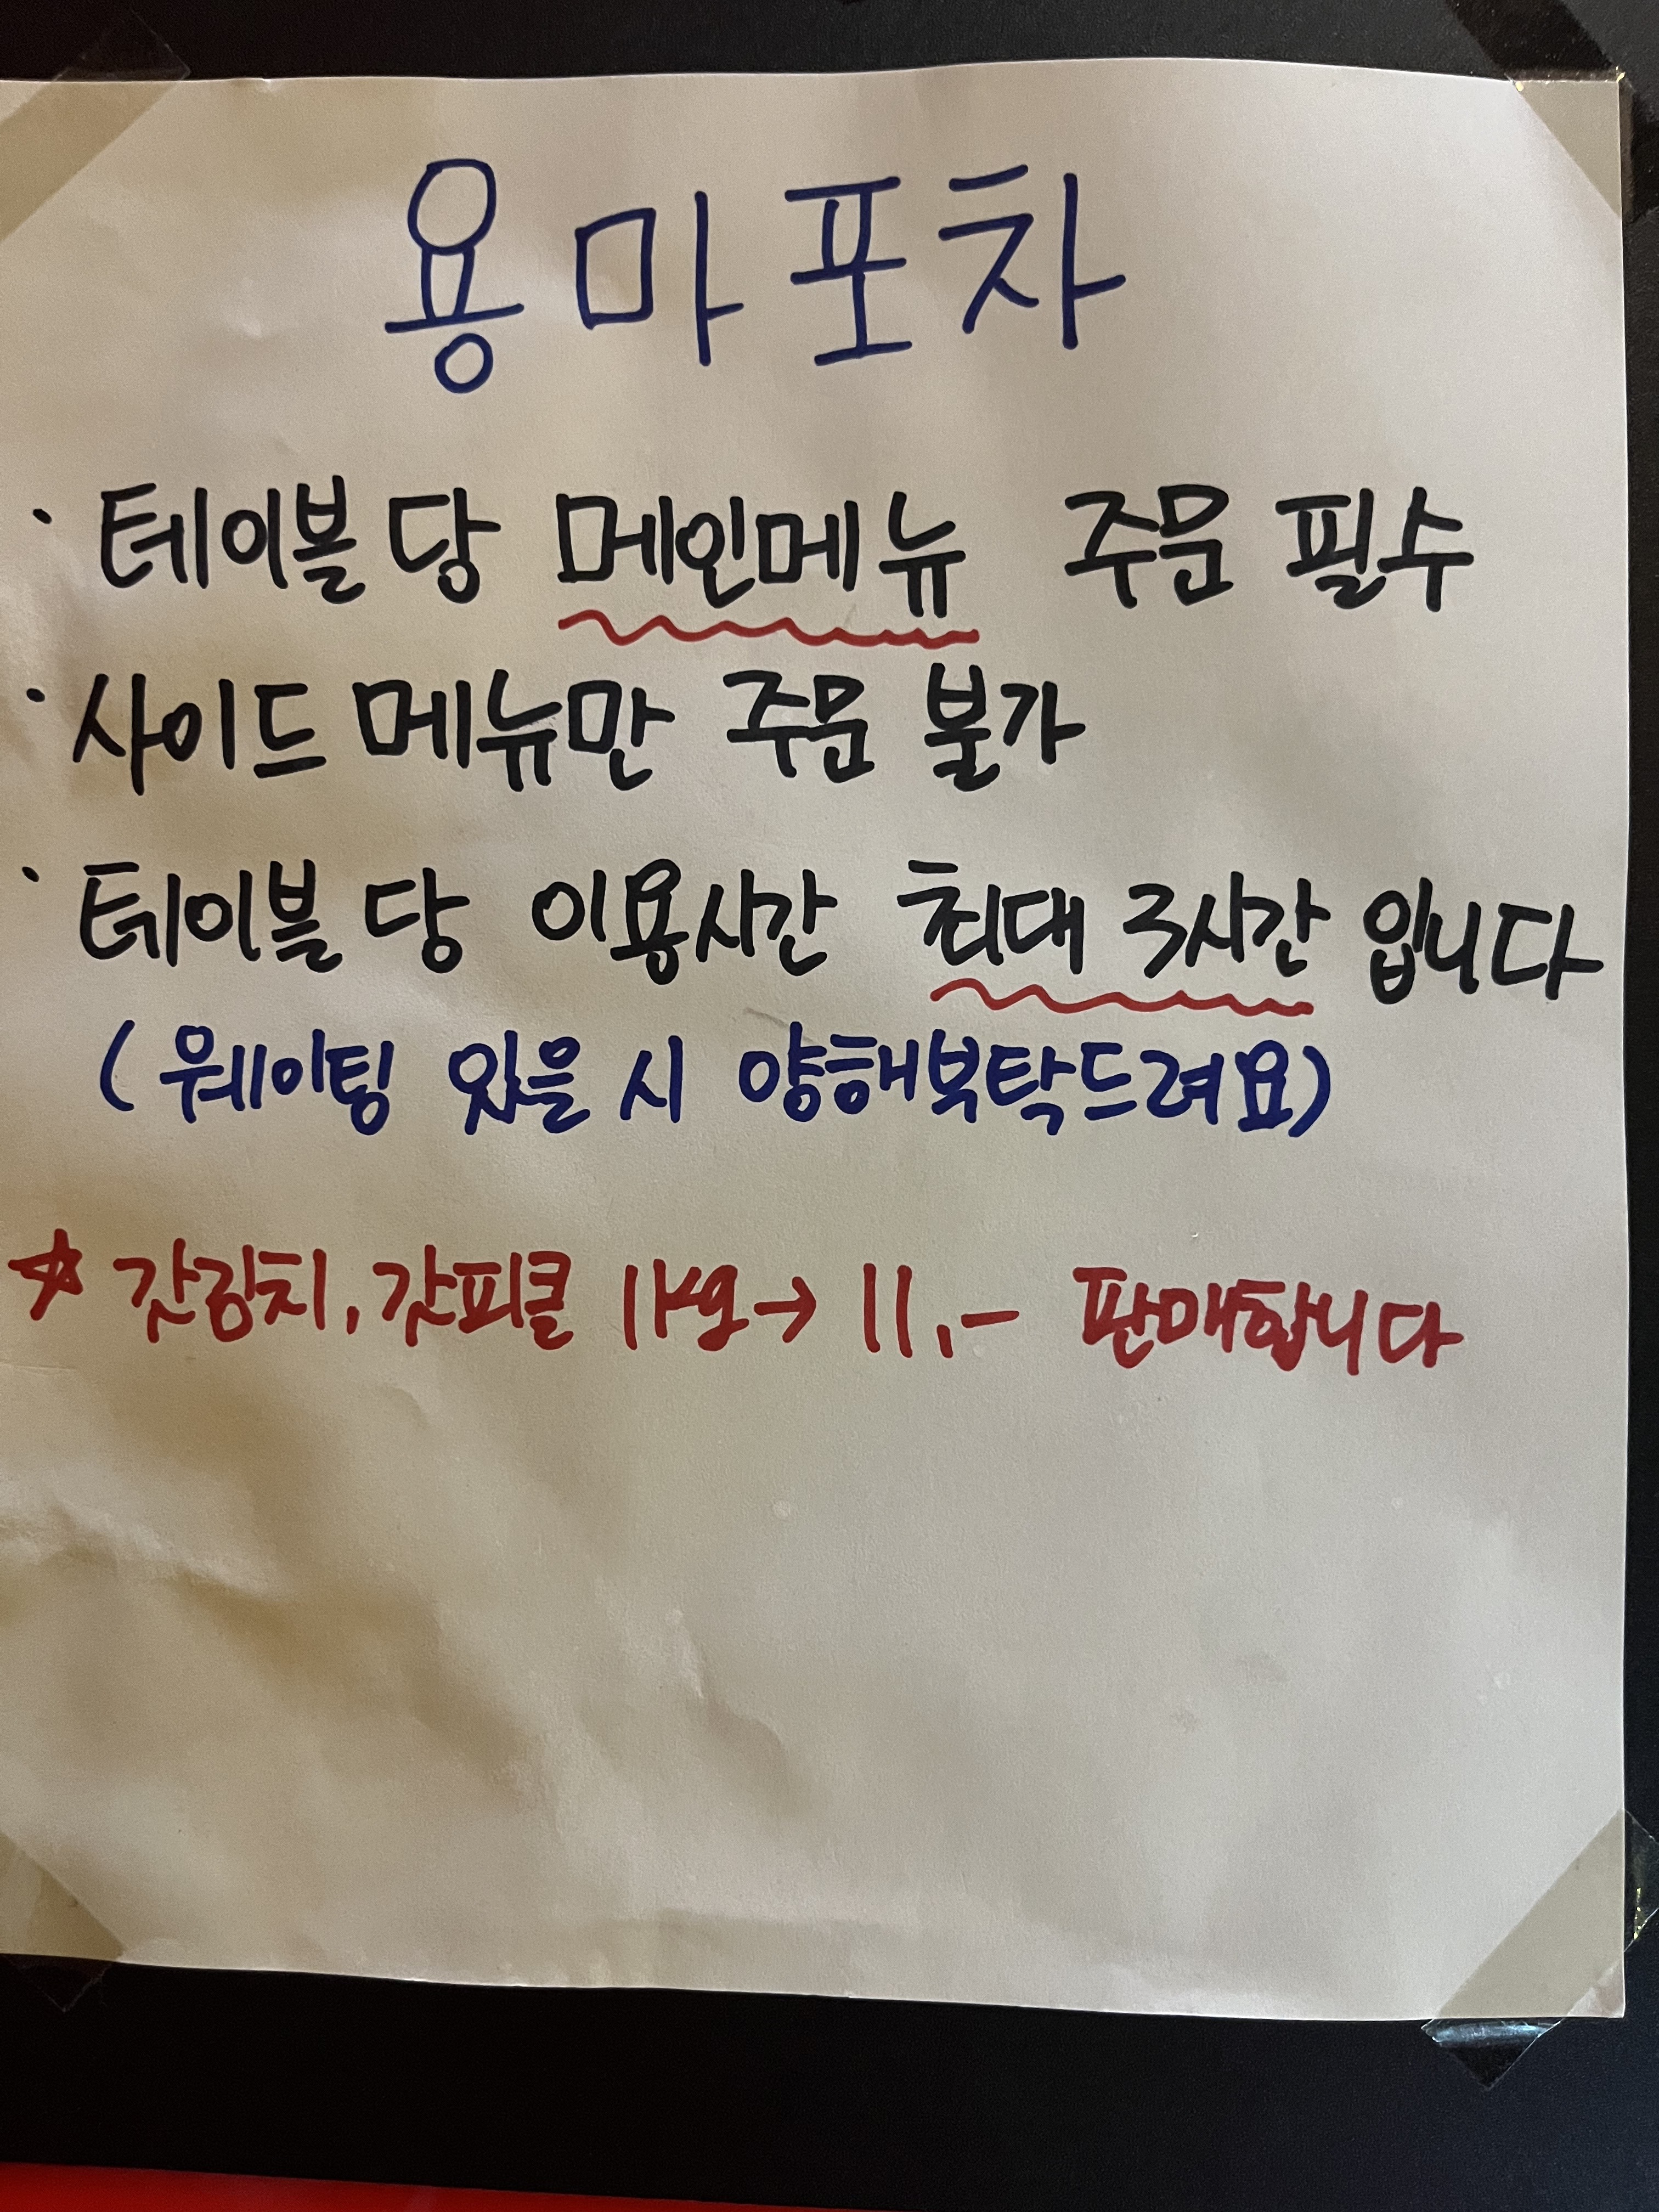 용마포차
· 테이블 당 메인메뉴 주문 필수
· 사이드 메뉴만 주문 불가
· 테이블 당 이용시간 최대 3시간 입니다
(웨이팅 있을 시 양해부탁드려요)
☆ 갓김치, 갓피클 1kg → 11,- 판매합니다